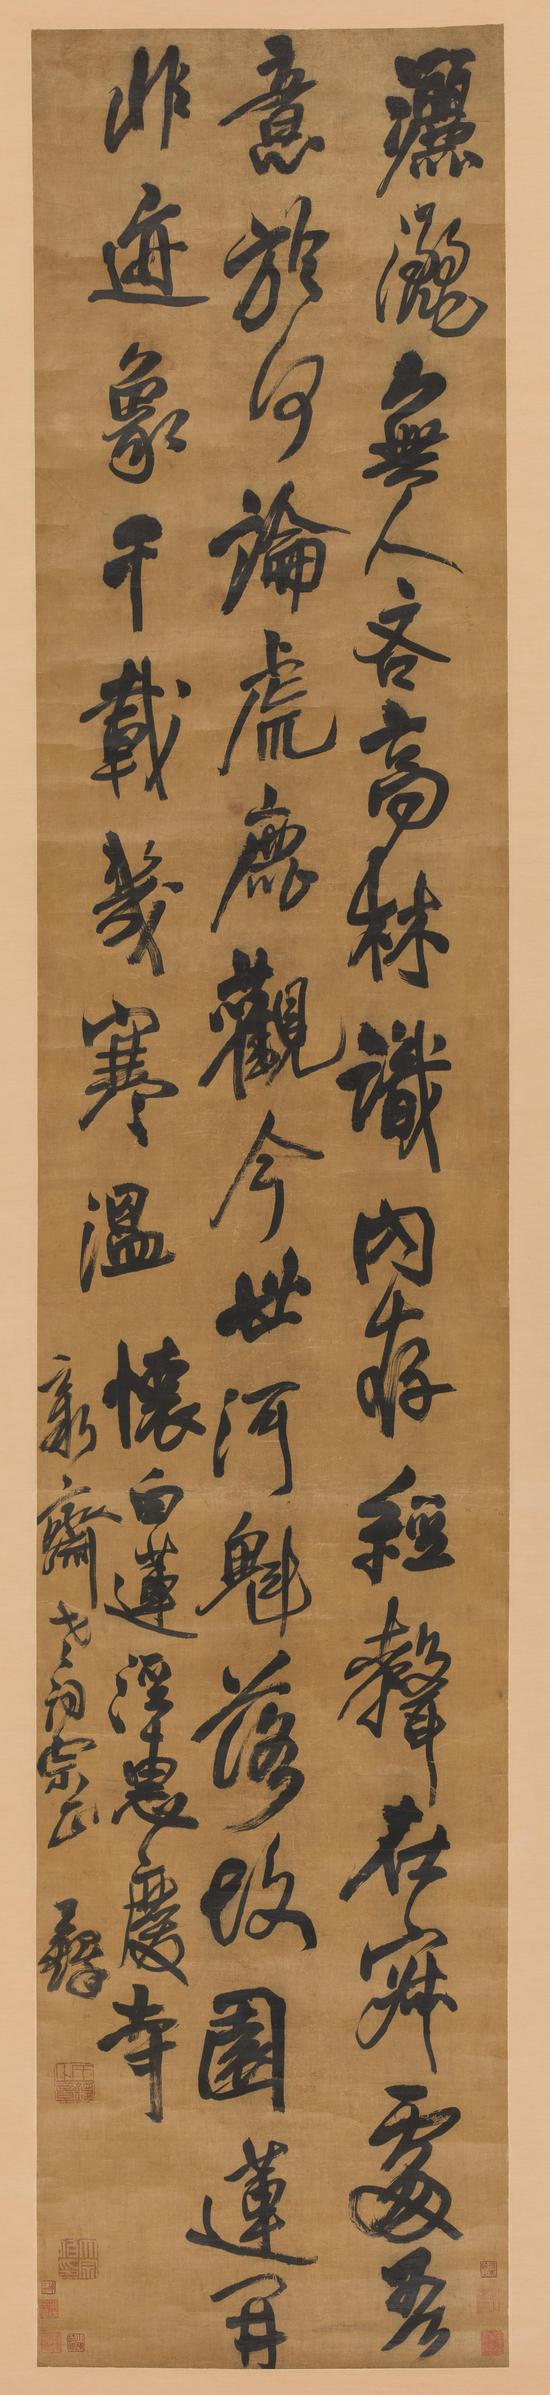 灑灑無人吝高林識內存經聲在寂處吾
意於何論虎鹿觀今世河魁落故園蓮開
非迹象千載幾寒溫 懷白蓮涇惠慶寺
齋老詞宗正 王鐸